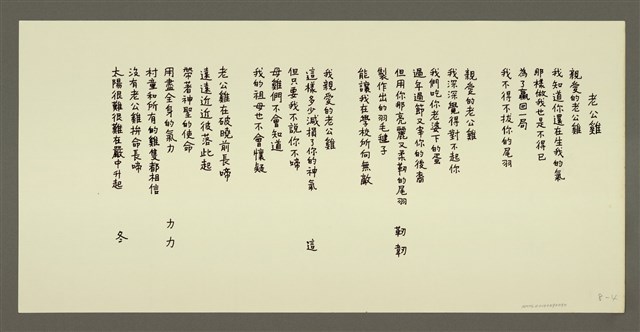 老公雞
親愛的老公雞
我知道你還在生我的氣
那樣做我也是不得已
為了贏回一局
我不得不拔你的尾羽
親愛的老公雞
我深深覺得對不起你
我們吃你老婆下的蛋
過年過節又宰你的後裔
但用你那亮麗又柔韌的尾羽 韌 韌
製作出的羽毛毽子
能讓我在學校所向無敵
我親愛的老公雞
這樣多少減損了你的神氣 這
但只要我不說你不啼
母雞們不會知道
我的祖母也不會懷疑
老公雞在破曉前長啼
遠遠近近彼落此起
帶著神聖的使命
用盡全身的氣力 力 力
村童和所有的雞隻都相信
沒有老公雞拚命長啼
太陽很難很難在嚴冬升起 冬
P-4